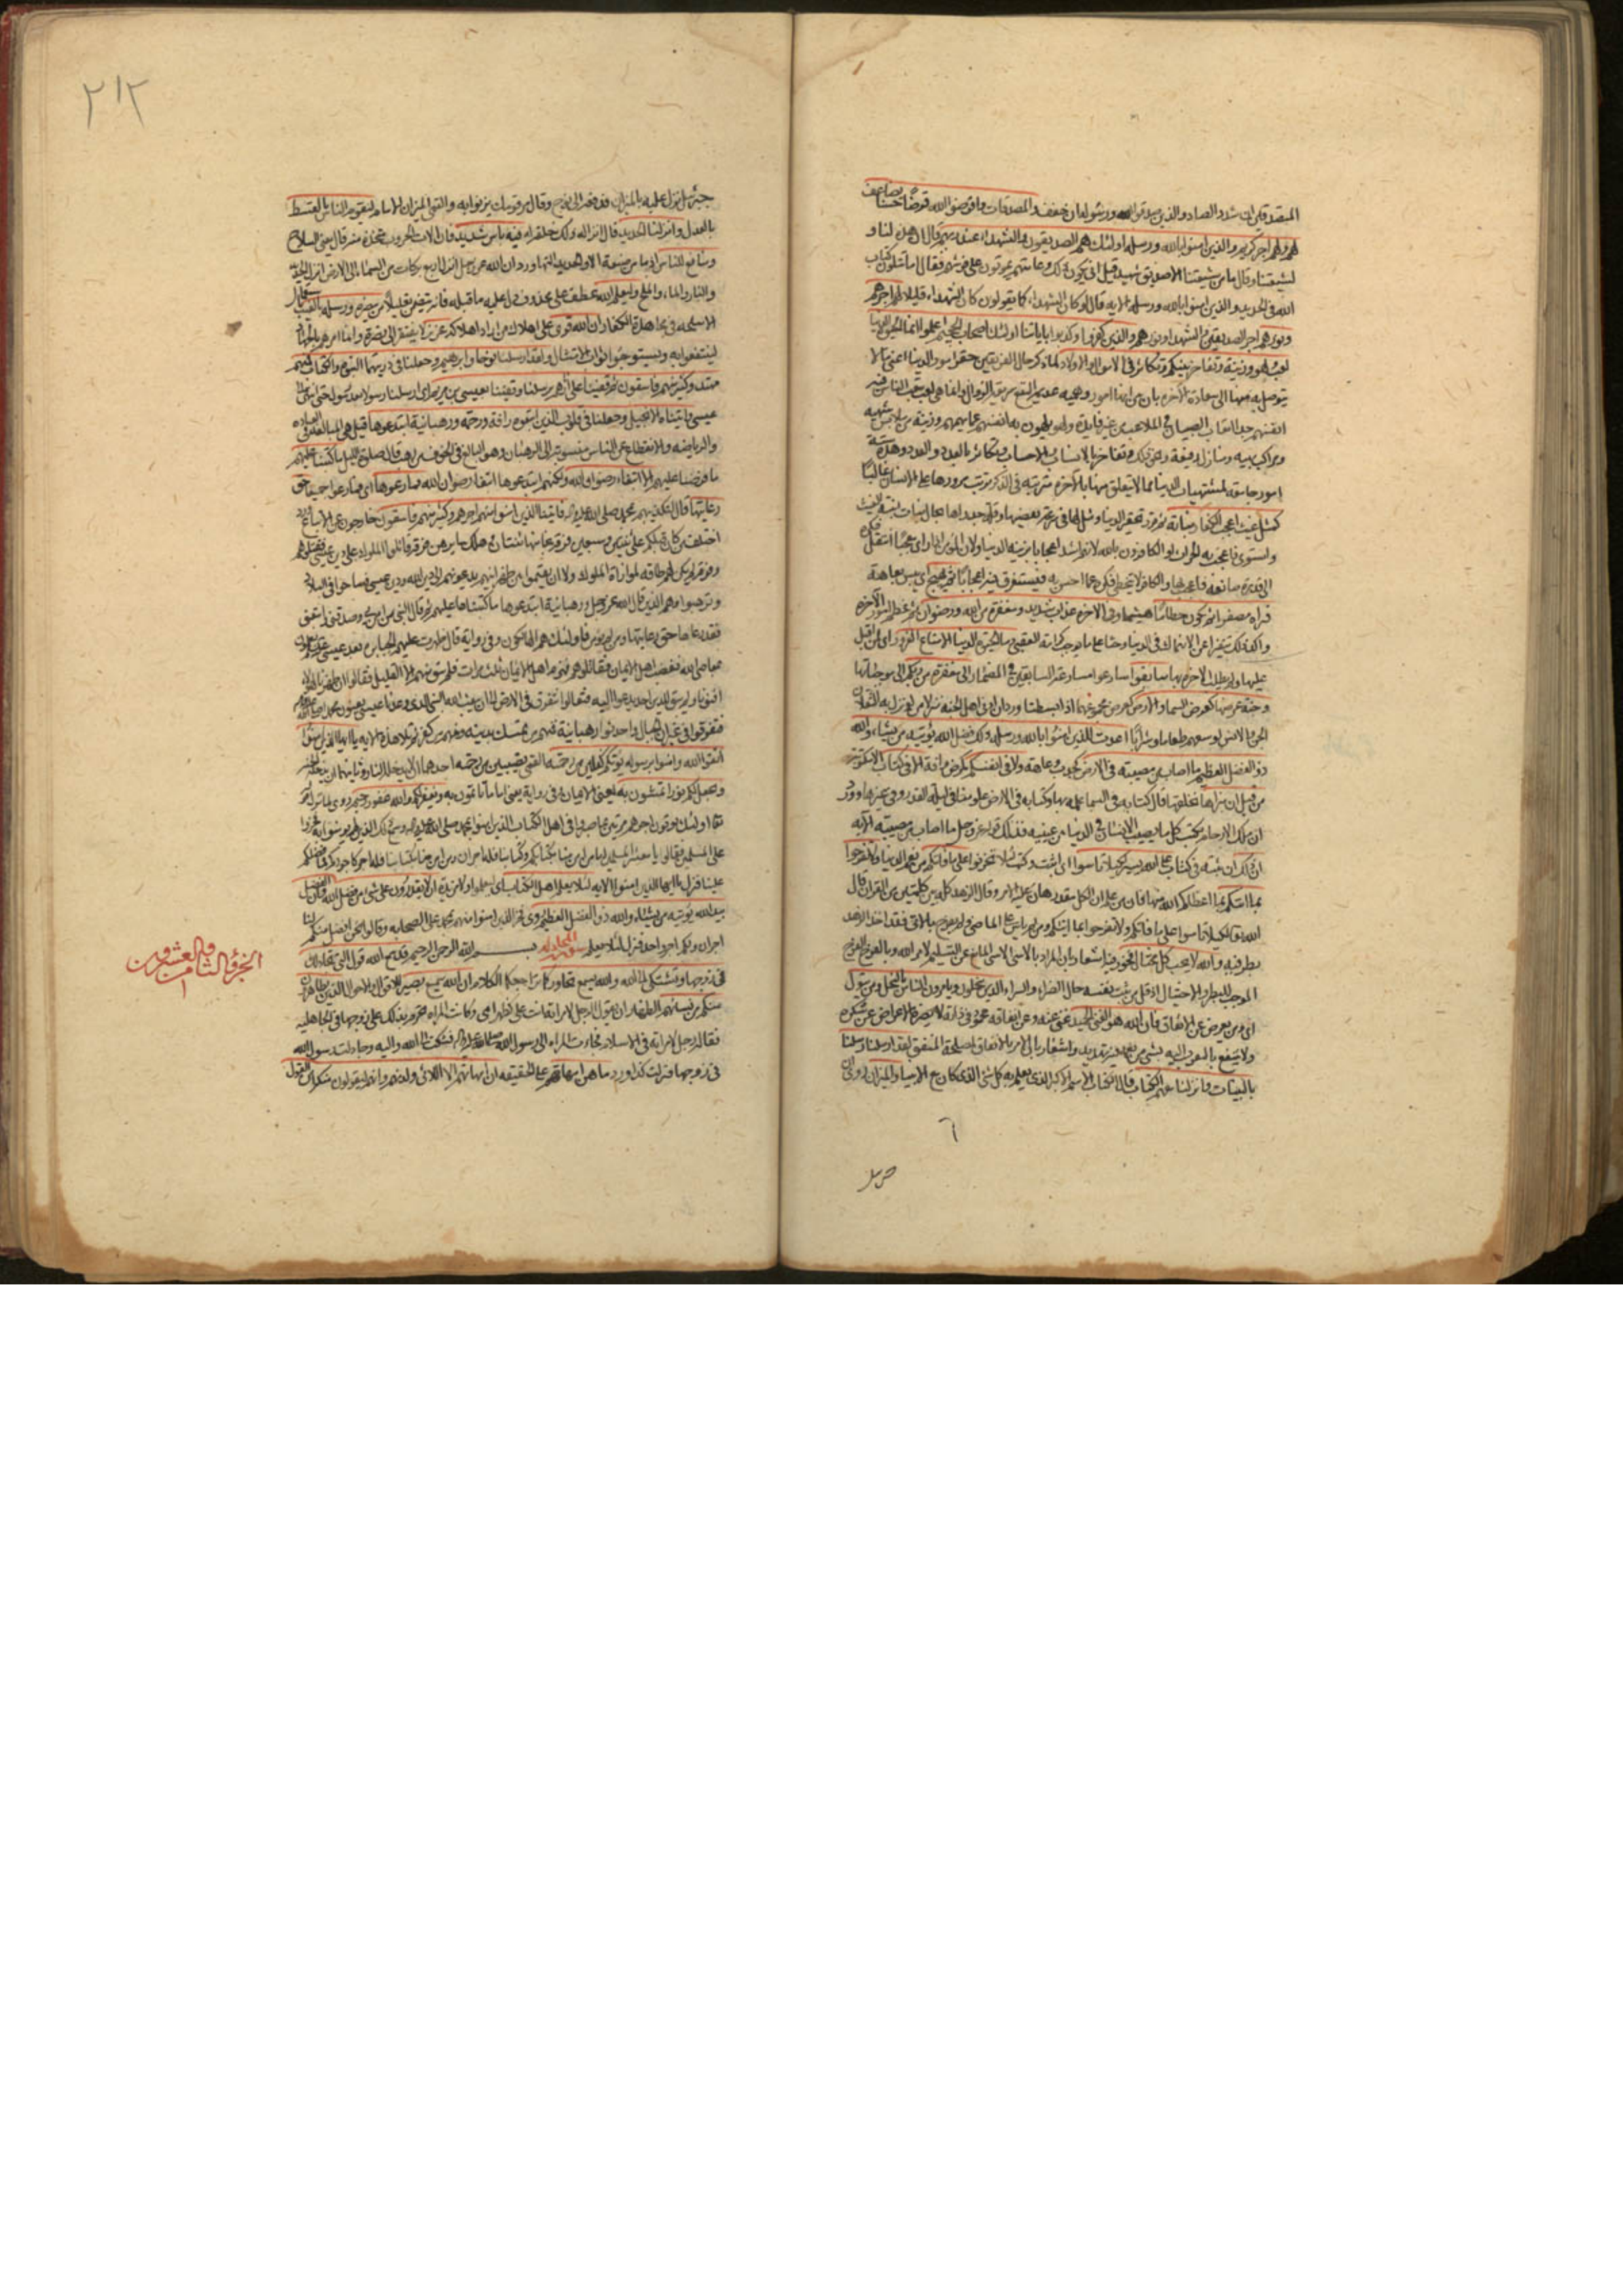 المتصدقين ان شدد الصاد والذين صدقوا الله ورسوله ان خفف والمصدقات واقرضوا الله قرضا حسنا يضاعف
لهم ولهم اجر كريم والذين امنوا بالله ورسله اولئك هم الصديقون والشهداء عند ربهم قال ان هذه لنا و
لشيعتنا وقال ما من شيعتنا الا صديق شهيد قيل انى يكون ذلك وعامتهم يموتون على فرشهم فقال اما تتلون كتاب
الله فى الحديد والذين امنوا بالله ورسله الايه قال لو كان الشهداء كما يقولون كان الشهداء قليلا لهم اجرهم
ونورهم اجر الصديقين والشهداء ونورهم والذين كفروا وكذبوا باياتنا اولئك اصحاب الجحيم اعلموا انما الحيوة الدنيا
لعب ولهو وزينة وتفاخر بينكم وتكاثر فى الاموال والاولاد لما ذكر حال الفريقين حقر امور الدنيا اعنى ما لا
يتوصل به منها الى سعادة الاخرة بان بين انها امور وهمية عديم النفع سريعة الزوال وانما هى لعب يتعب الناس فيه
انفسهم جدا اتعاب الصبيان فى الملاعب من غير فايدة ولهو يلهون به انفسهم عما يهمهم وزينة من ملابس شهيه
ومراكب بهيه ومنازل رفيعة ونحو ذلك وتفاخر بالانساب والاحساب وتكاثر بالعدد والعدد وهذه ستة
امور جامعة لمشتهيات الدنيا مما لا يتعلق منها بالآخرة مترتبة فى الذكر ترتب مرورها على الانسان غالبا
كمثل غيث اعجب الكفار نباته ثم قرر تحقير الدنيا ومثل لها فى سرعة تقضيها وقلة جدواها بحال نبات انبته الغيث
واستوى فاعجب به الحراث او الكافرون بالله لانهم اشد اعجابا بزينة الدنيا ولان المؤمن اذا راى معجبا انتقل فكره
الى قدرة صانعه فاعجب بها والكافر لا يتخطى فكره عما احس به فيستغرق فيه اعجابا ثم يهيج اى ييبس بعاهة
فتراه مصفرا ثم يكون حطاما هشيما وفى الاخرة عذاب شديد ومغفرة من الله ورضوان ثم عظم امور الآخرة
واكد ذلك تنفيرا عن الانهماك فى الدنيا وحثا على ما يوجب كرامة العقبى وما الحيوة الدنيا الا متاع الغرور اى لمن اقبل
عليها ولم يطلب الاخرة بها سابقوا سارعوا مسارعة السابقين فى المضمار الى مغفرة من ربكم الى موجباتها
وجنة عرضها كعرض السماء والارض كعرض مجموعهما اذا انبسطتا ورد ان ادنى اهل الجنة منزلا من لو نزل به الثقلان
الجن والانس لوسعهم طعاما وشرابا اعدت للذين امنوا بالله ورسله ذلك فضل الله يؤتيه من يشاء والله
ذو الفضل العظيم ما اصاب من مصيبة فى الارض كجدب وعاهة ولا فى انفسكم كمرض وافة الا فى كتاب الا مكتوبة
من قبل ان نبراها نخلقها قال كتابه فى السماء علمه بها وكتابه فى الارض علومنا فى ليلة القدر وفى غيرها وورد
ان ملك الارحام يكتب كل ما يصيب الانسان فى الدنيا بين عينيه فذلك قوله عز وجل ما اصاب من مصيبة الآية
ان ذلك ان ثبته فى كتاب على الله يسير لكيلا تاسوا اى اثبت وكتب لئلا تحزنوا على ما فاتكم من نعم الدنيا ولا تفرحوا
بما اتيكم بما اعطاكم الله منها فان من علم ان الكل مقدر هان عليه الامر وقال الزهد كله بين كلمتين من القران قال
الله تعالى لكيلا تاسوا على ما فاتكم ولا تفرحوا بما اتيكم ومن لم ياس على الماضى ولم يفرح بالاتى فقد اخذ الزهد
بطرفيه والله لا يحب كل مختال فخور فيه اشعار بان المراد بالاسى الاسى المانع عن التسليم لامر الله وبالفرح الفرح
الموجب للبطر والاختيال اذ قل من يثبت نفسه حال الضراء والسراء الذين يبخلون ويامرون الناس بالبخل ومن يتول
اى ومن يعرض عن الانفاق فان الله هو الغنى الحميد غنى عنه وعن انفاقه محمود فى ذاته لا يضره الاعراض عن شكره
ولا ينفع بالتقرب اليه بشئ من نعمه فيه تهديد واشعار بان الامر بالانفاق لمصلحة المنفق لقد ارسلنا رسلنا
بالبينات وانزلنا معهم الكتاب قال الكتاب الاسم الاكبر الذى يعلم به كل شئ الذى كان مع الانبياء والميزان روى ان
جبرئيل
٢١٢
جبرئيل نزل عليه بالميزان فدفعه الى نوح وقال مر قومك يزنوا به والقمى الميزان الامام ليقوم الناس بالقسط
بالعدل وانزلنا الحديد قال انزاله ذلك خلقه اياه فيه باس شديد فان الات الحروب متخذة منه قال يعنى السلاح
ومنافع للناس اذ ما من صنعة الا والحديد التها ورد ان الله عز وجل انزل اربع بركات من السماء الى الارض انزل الحديد
والنار والماء والملح وليعلم الله عطف على محذوف دل عليه ما قبله فانه يتضمن تعليلا من ينصره ورسله بالغيب باستعمال
الاسلحة فى مجاهدة الكفار ان الله قوى على اهلاك من اراد اهلاكه عزيز لا يفتقر الى نصرة وانما امرهم بالجهاد
لينتفعوا به ويستوجبوا ثواب الامتثال ولقد ارسلنا نوحا وابرهيم وجعلنا فى ذريتهما النبوة والكتاب فمنهم
مهتد وكثير منهم فاسقون ثم قفينا على اثارهم برسلنا وقفينا بعيسى بن مريم اى ارسلنا رسولا بعد رسول حتى انتهى الى
عيسى واتيناه الانجيل وجعلنا فى قلوب الذين اتبعوه رافة ورحمة ورهبانية ابتدعوها قيل هى المبالغة فى العبادة
والرياضة والانقطاع عن الناس منسوبة الى الرهبان وهو المبالغ فى الخوف من رهب قال صلوة الليل ما كتبناها عليهم
ما فرضنا عليهم الا ابتغاء رضوان الله ولكنهم ابتدعوها ابتغاء رضوان الله فما رعوها اى فما رعوا جميعا حق
رعايتها قال لتكذيبهم بمحمد صلى الله عليه واله فاتينا الذين امنوا منهم اجرهم وكثير منهم فاسقون خارجون عن الاتباع ورد
اختلف من كان قبلكم على ثنتين وسبعين فرقة نجا منها اثنتان وهلك سايرهن فرقة قاتلوا الملوك على دين عيسى فقتلوهم
وفرقة لم يكن لهم طاقة لموازاة الملوك ولا ان يقيموا بين ظهرانيهم يدعونهم الى دين الله ودين عيسى فساحوا فى البلاد
وترهبوا وهم الذين قال الله عز وجل ورهبانية ابتدعوها ما كتبناها عليهم ثم قال النبى من امن بى وصدقنى واتبعنى
فقد رعاها حق رعايتها ومن لم يؤمن بى فاولئك هم الهالكون وفى رواية قال ظهرت عليهم الجبابرة بعد عيسى يعملون
بمعاصى الله فغضب اهل الايمان فقاتلوهم فهزم اهل الايمان ثلث مرات فلم يبق منهم الا القليل فقالوا ان ظهرنا لهؤلاء
افنونا ولم يبق للدين احد يدعوا اليه فتعالوا نتفرق فى الارض الى ان يبعث الله النبى الذى وعدنا عيسى يعنون محمدا صلى الله عليه واله
فتفرقوا فى غيران الجبال واحدثوا رهبانية فمنهم من تمسك بدينه ومنهم من كفر ثم تلا هذه الايه يا ايها الذين امنوا
اتقوا الله وامنوا برسوله يؤتكم كفلين من رحمته القمى نصيبين من رحمته احدهما ان لا يدخله النار وثانيهما ان يدخله الجنة
ويجعل لكم نورا تمشون به يعنى الايمان وفى رواية يعنى اماما تاتمون به ويغفر لكم والله غفور رحيم روى لما نزل قوله
تعالى اولئك يؤتون اجرهم مرتين بما صبروا فى اهل الكتاب الذين امنوا بمحمد صلى الله عليه واله وسمع ذلك الذين لم يؤمنوا به فخروا
على المسلمين فقالوا يا معشر المسلمين اما من امن منا بكتابكم وكتابنا فله اجران ومن امن منا بكتابنا فله اجر كاجوركم فما فضلكم
علينا فنزل يا ايها الذين امنوا الايه لئلا يعلم اهل الكتاب اى ليعلموا ولا مزيدة ان لا يقدرون على شئ من فضل الله وان الفضل
بيد الله يؤتيه من يشاء والله ذو الفضل العظيم روى فخر الذين امنوا منهم بمحمد على الصحابه وقالوا نحن افضل منكم لنا
اجران ولكم اجر واحد فنزل لئلا يعلم سورة المجادله بسم الله الرحمن الرحيم قد سمع الله قول التى تجادلك
الجزؤ الثامن والعشرون
فى زوجها وتشتكى الى الله والله يسمع تحاوركما تراجعكما الكلام ان الله سميع بصير للاقوال والاحوال الذين يظاهرون
منكم من نسائهم الظهار ان يقول الرجل لامراته انت على كظهر امى وكانت المراة تحرم بذلك على زوجها فى الجاهلية
فقاله رجل لامراته فى الاسلام فجاءت المراة الى رسول الله صلى الله عليه واله فشكت الى الله واليه وجادلت رسول الله
فى زوجها فنزلت كذا ورد ما هن امهاتهم على الحقيقه ان امهاتهم الا اللائى ولدنهم وانهم ليقولون منكرا من القول